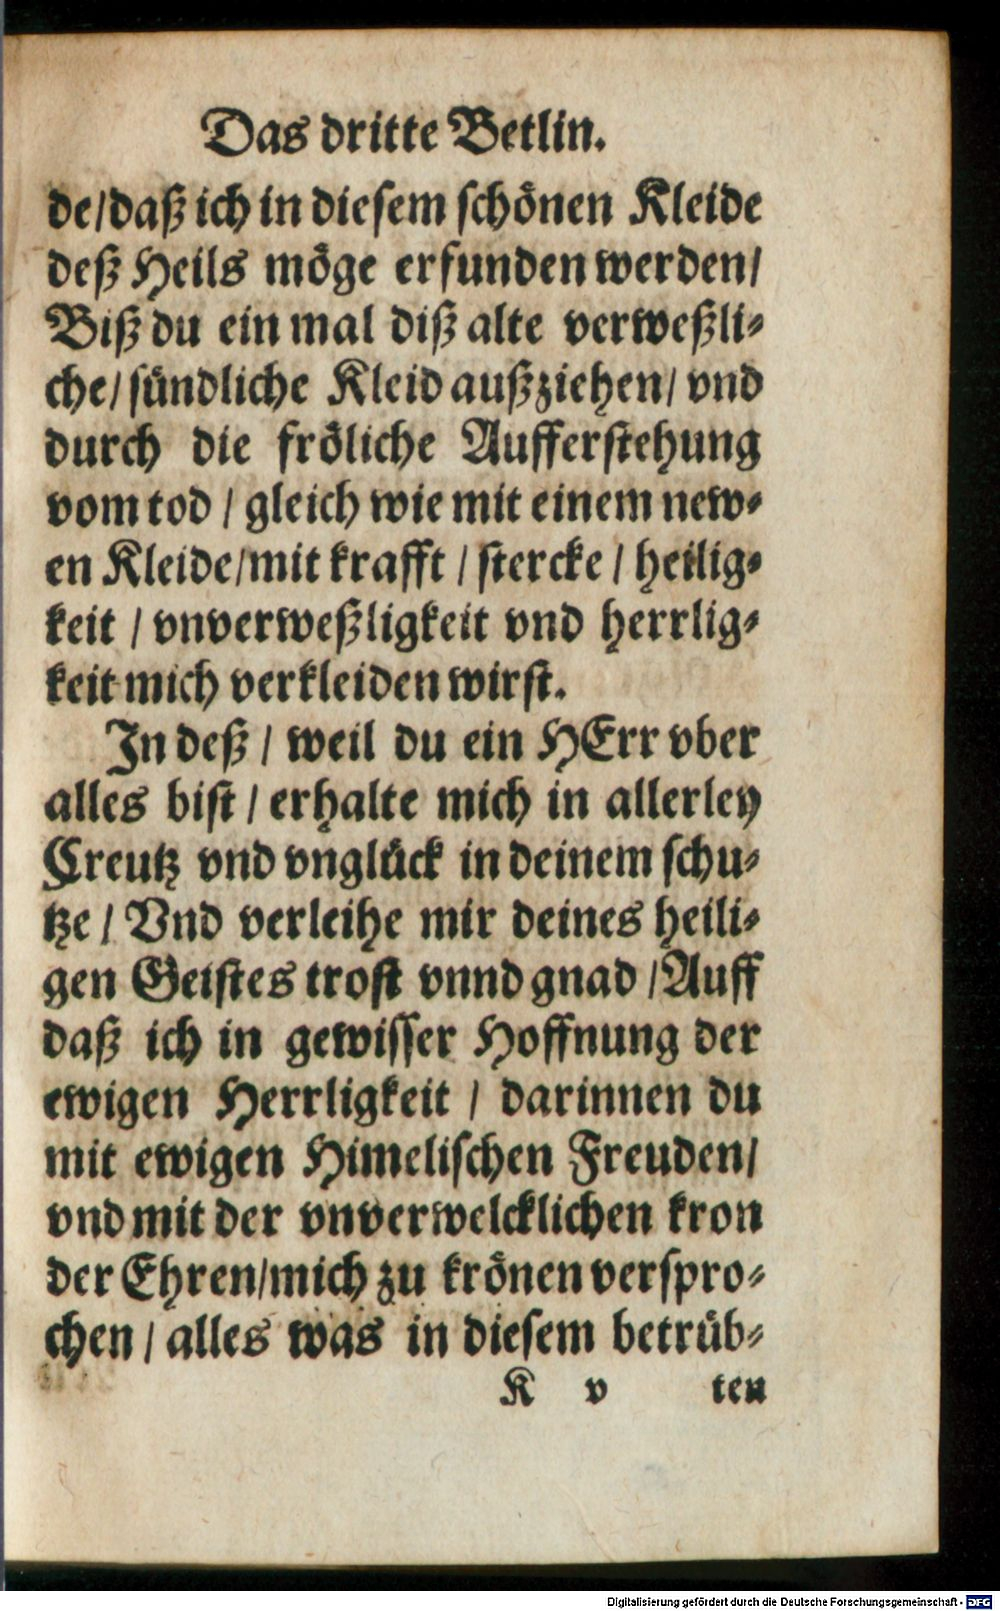 Das dritte Betlin.
de/daß ich in diesem schönen Kleide
deß Heils möge erfunden werden/
Biß du ein mal diß alte verweßli-
che/ sündliche Kleid außziehen/ vnd
durch die fröliche Aufferstehung
vom tod / gleich wie mit einem new-
en Kleide/mit krafft / stercke / heilig-
keit / vnverweßligkeit vnd herrlig-
keit mich verkleiden wirst.
In deß / weil du ein HErr vber
alles bist / erhalte mich in allerley
Creutz vnd vnglück in deinem schu-
tze / Vnd verleihe mir deines heili-
gen Geistes trost vnnd gnad /Auff
daß ich in gewisser Hoffnung der
ewigen Herrligkeit / darinnen du
mit ewigen Himelischen Freuden/
vnd mit der vnverwelcklichen kron
der Ehren/mich zu krönen verspro-
chen / alles was in diesem betrüb-
K v ten
Digitalisierung gefördert durch die Deutsche Forschungsgemeinschaft - DFG